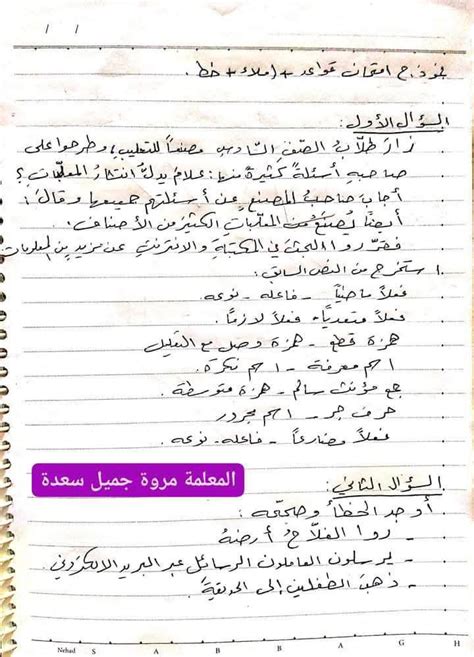 / /
نموذج امتحان قواعد + إملاء + خط.
السؤال الأول:
زارَ طلّابُ الصّفِّ السّادسِ مصنعاً للتعليبِ، وطرحوا على
صاحبهِ أسئلةً كثيرةً منها: علامَ يدلُّ انتشارُ المعلّباتِ؟
أجابَ صاحبُ المصنعِ عن أسئلتهم جميعها وقالَ:
أيضاً يُصنَعُ من المعلّبات الكثير من الأصناف.
فقرّروا البحثَ في المكتبةِ والانترنتِ عن مزيدٍ من المعلومات
1 ستخرج من النص السابق:
فعلاً ماضياً - فاعله - نوعه.
فعلاً متعدياً - فعلاً لازماً.
همزة قطع - همزة وصل مع التعليل
اسم معرفة - اسم نكرة.
جمع مؤنث سالم - همزة متوسطة.
حرف جر - اسم مجرور
فعلاً مضارعاً - فاعله - نوعه.
السؤال الثاني:
المعلمة مروة جميل سعدة
أوجد الخطأ وصحّحه:
- روا الفلّاحُ أرضهُ
- يرسلون العاملون الرسائل عبر البريد الالكتروني.
- ذهبَ الطفلين إلى الحديقةِ.
Nehad S A B B A G H